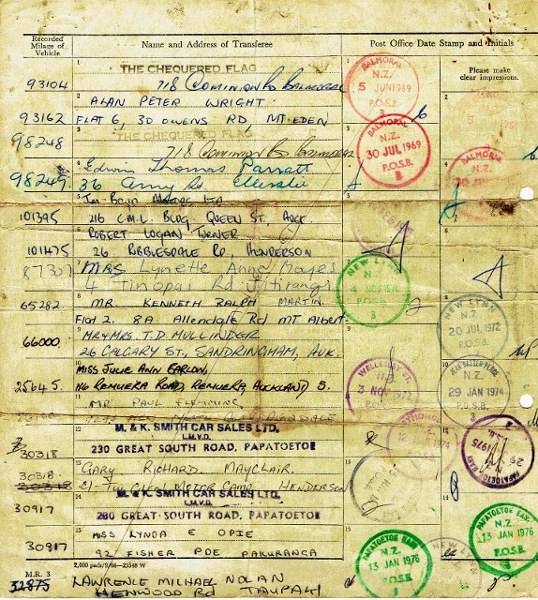 Recorded
Milage of
Vehicle
Name and Address of Transferee
Post Office Date Stamp and Initials
Please make
clear impressions.
1
THE CHEQUERED FLAG
93104
718 Dominion Rd Balmoral
2
ALAN PETER WRIGHT
93162
FLAT 6, 30 OWENS RD MT. EDEN
3
THE CHEQUERED FLAG
98248
718 Dominion Rd Balmoral
4
Edwin Thomas Parratt
98249
36 Amy St. Ellerslie
5
Motors LTD
101395
216 C.M.L. BLDG, QUEEN ST, AUCK.
6
ROBERT LOGAN TURNER
101475
26 RIBBLESDALE RD, HENDERSON
7
87307
MRS Lynette Anne Hayes
4 Tinopai Rd Titirangi
8
65282
MR. KENNETH RALPH MARTIN.
FLAT 2. 8A Allendale Rd MT Albert
9
66000
MR & MRS. T.D. MULLINDER
26 CALGARY ST., SANDRINGHAM, AUK.
10
MISS JULIE ANN
25645
116 REMUERA ROAD, REMUERA, AUCKLAND 5.
11
MR PAUL FLEMMING
12
M. & K. SMITH CAR SALES LTD.
L.M.V.D.
30318
230 GREAT SOUTH ROAD, PAPATOETOE
13
GARY RICHARD MAYCLAIR.
30318
30318
MOTOR CAMP HENDERSON
14
M. & K. SMITH CAR SALES LTD.
L.M.V.D.
30917
230 GREAT SOUTH ROAD, PAPATOETOE
15
MISS LYNDA E OPIE
30917
92 FISHER PDE PAKURANGA
M.R. 3
32875
LAWRENCE MICHAEL NOLAN
HENWOOD RD TAUPAKI
BALMORAL
N.Z.
5 JUN 1969
P.O.S.B.
BALMORAL
N.Z.
30 JUL 1969
P.O.S.B.
3
BALMORAL
N.Z.
NEW LYNN
N.Z.
P.O.S.B.
3
NEW LYNN
N.Z.
20 JUL 1972
P.O.S.B.
WELLESLEY ST.
N.Z.
3 NOV
P.O.S.B.
N.Z.
29 JAN 1974
P.O.S.B.
PAPATOETOE EAST
N.Z.
13 JAN 1976
P.O.S.B.
PAPATOETOE EAST
N.Z.
13 JAN 1976
P.O.S.B.